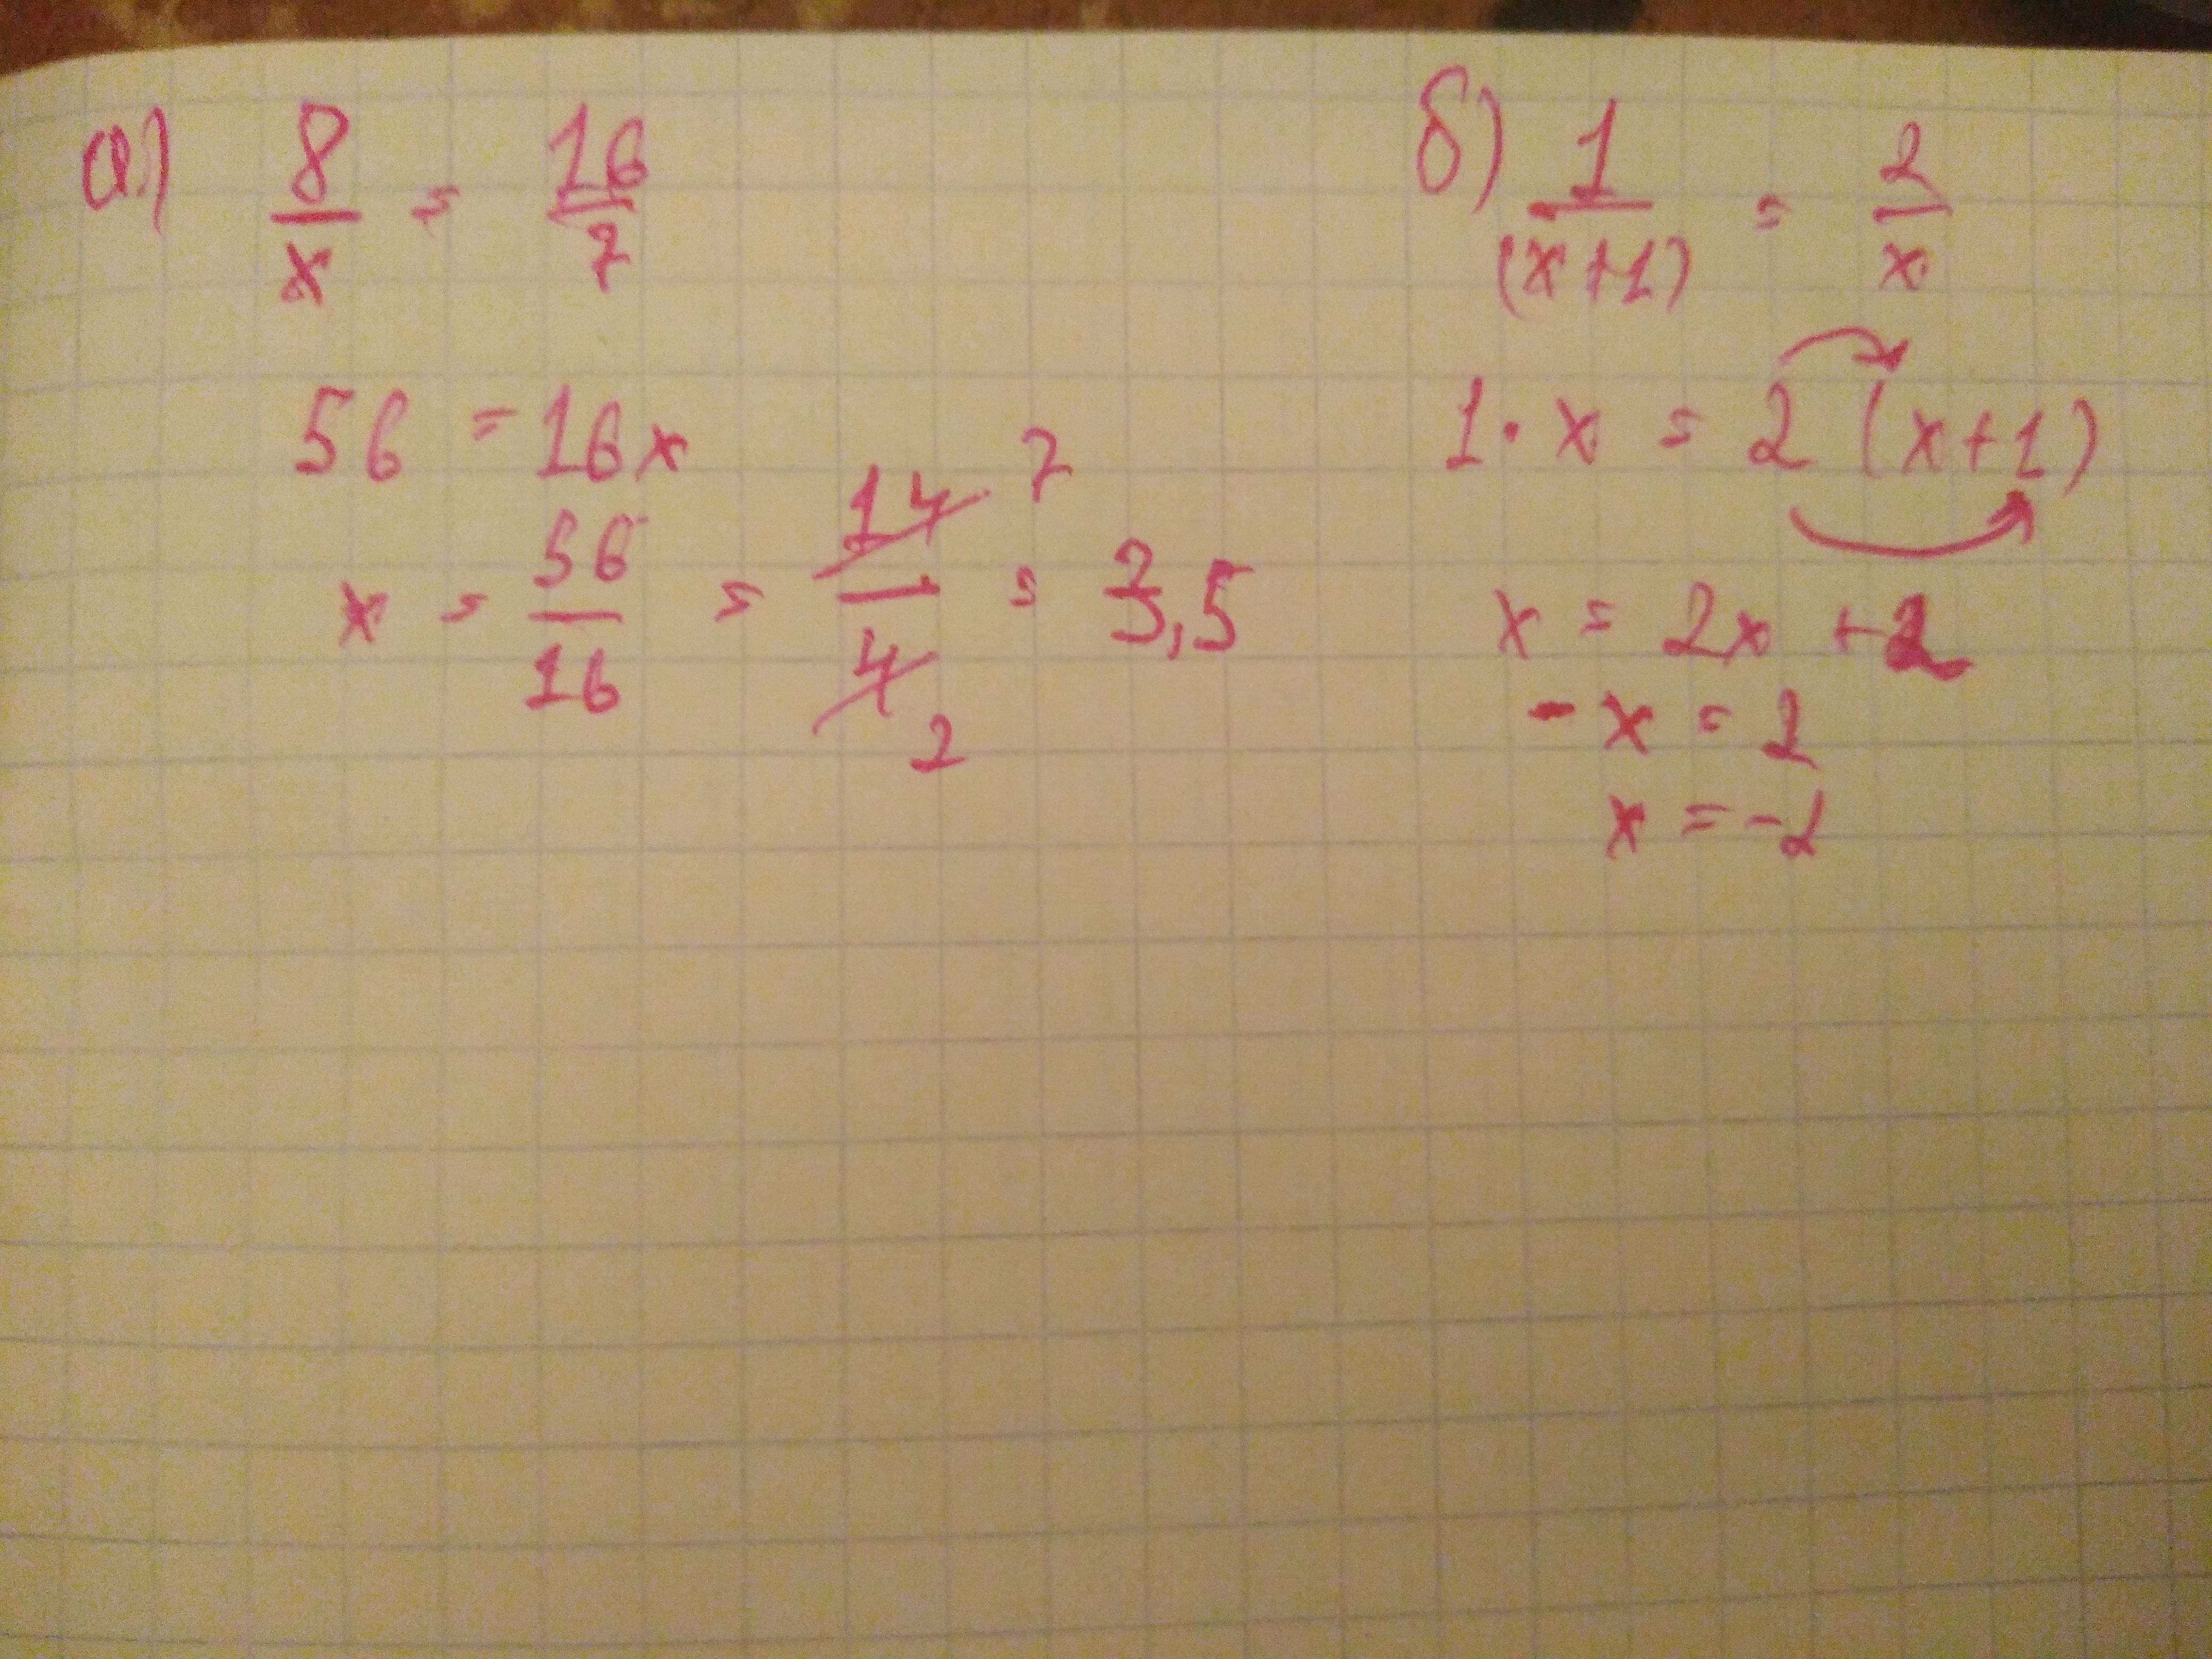 а) 8/x = 16/7
56 = 16x
x = 56/16 = 14/4 7 2 = 3,5
б) 1/(x+1) = 2/x
1 · x = 2 (x+1)
x = 2x + 2
- x = 2
x = -2